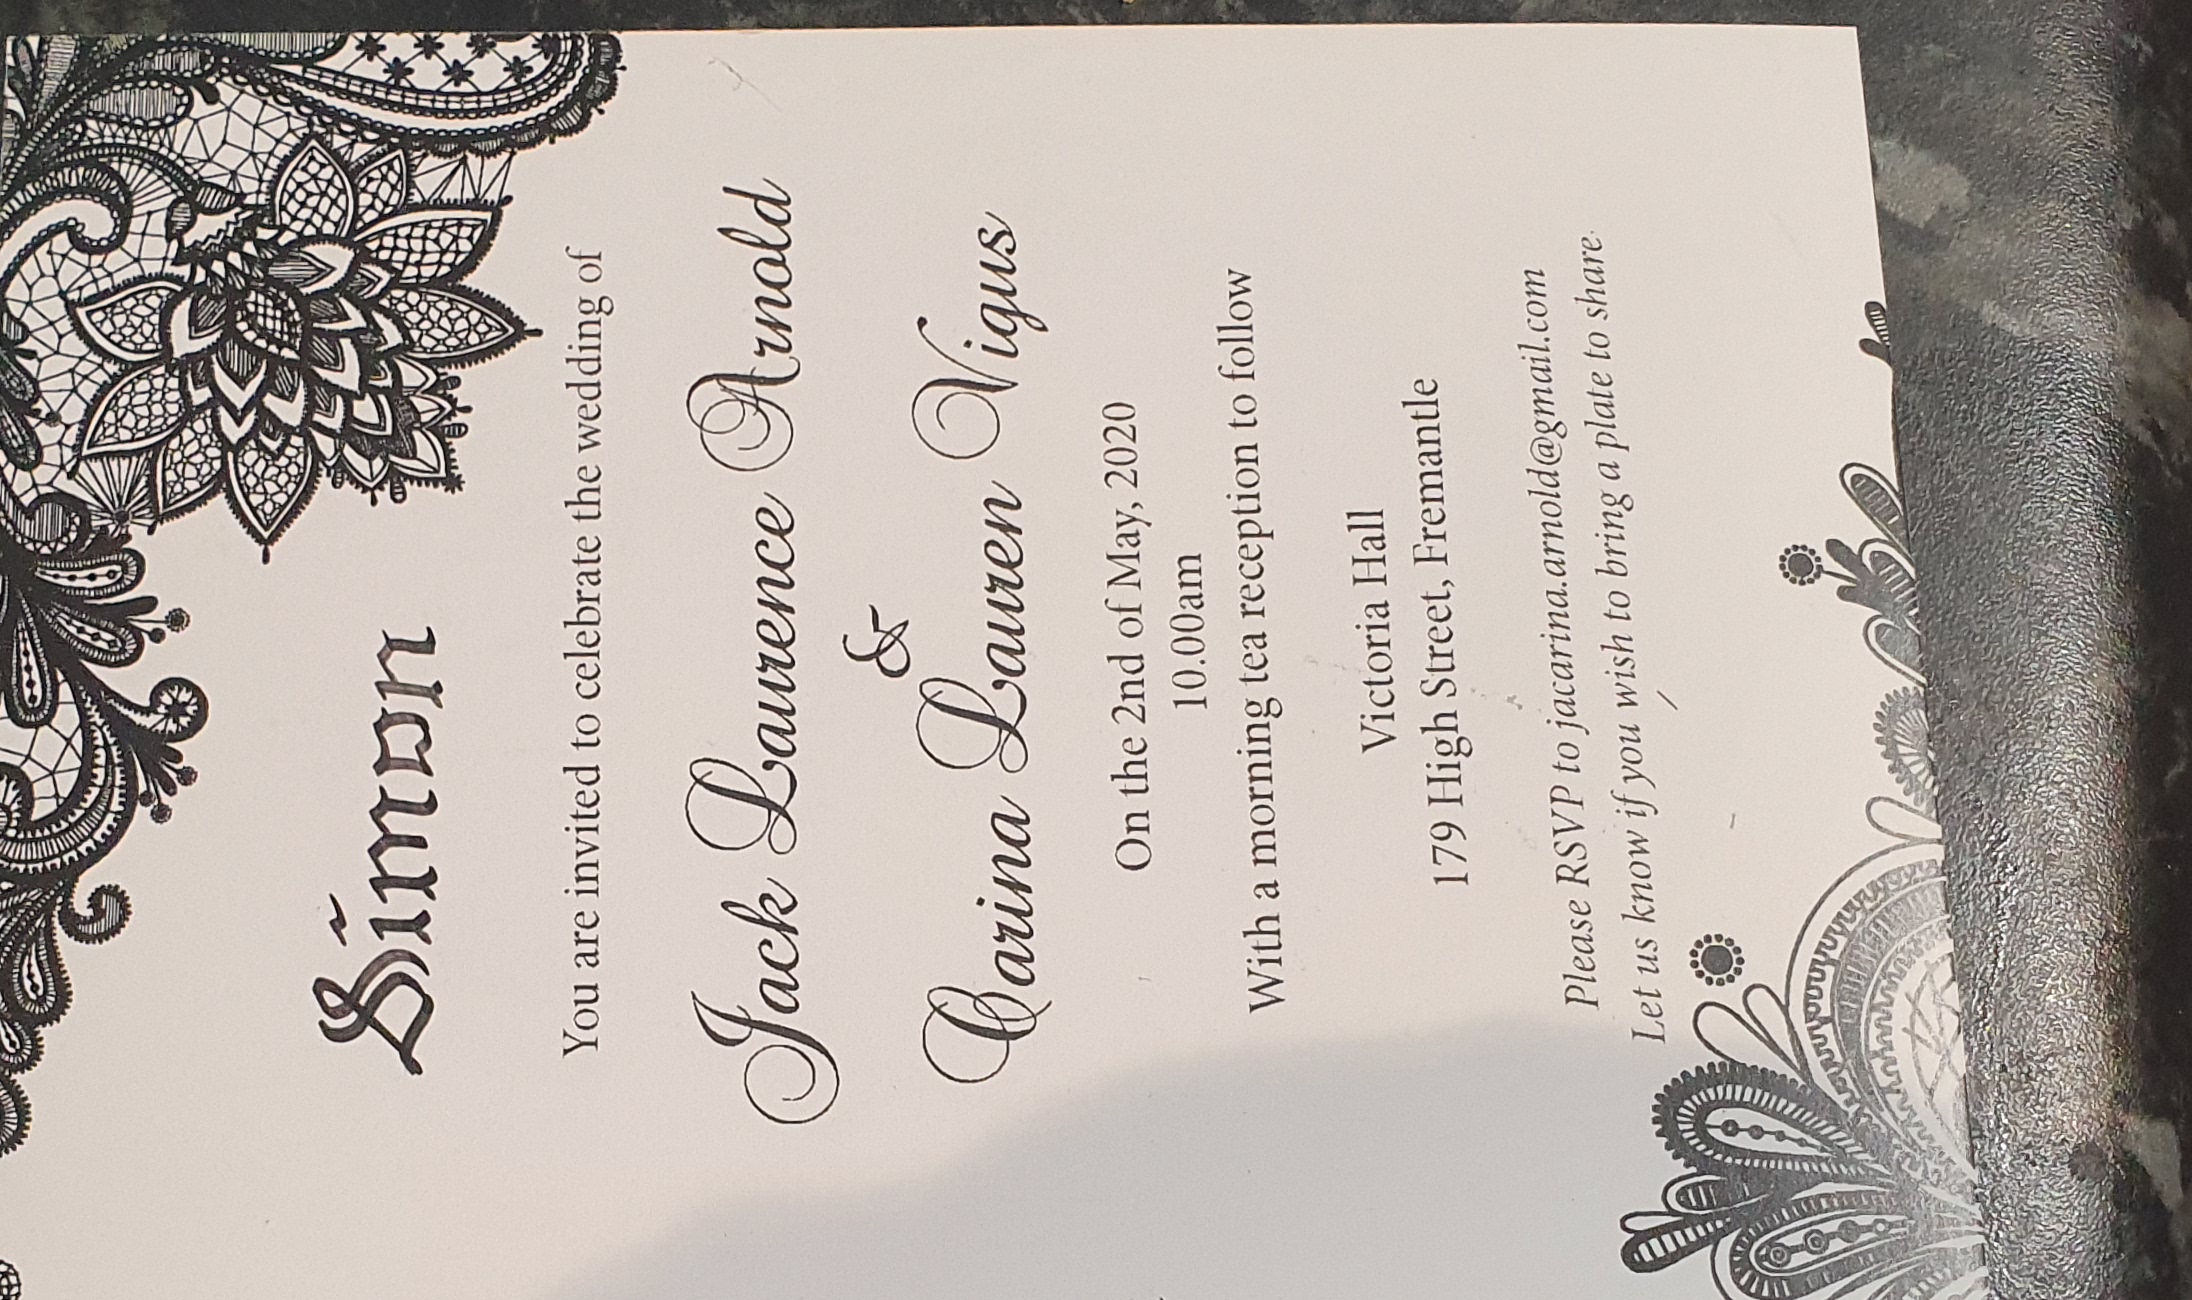 Simon
You are invited to celebrate the wedding of
Jack Laurence Arnold
&
Carina Lauren Vigus
On the 2nd of May, 2020
10.00am
With a morning tea reception to follow
Victoria Hall
179 High Street, Fremantle
Please RSVP to jacarina.arnold@gmail.com
Let us know if you wish to bring a plate to share.